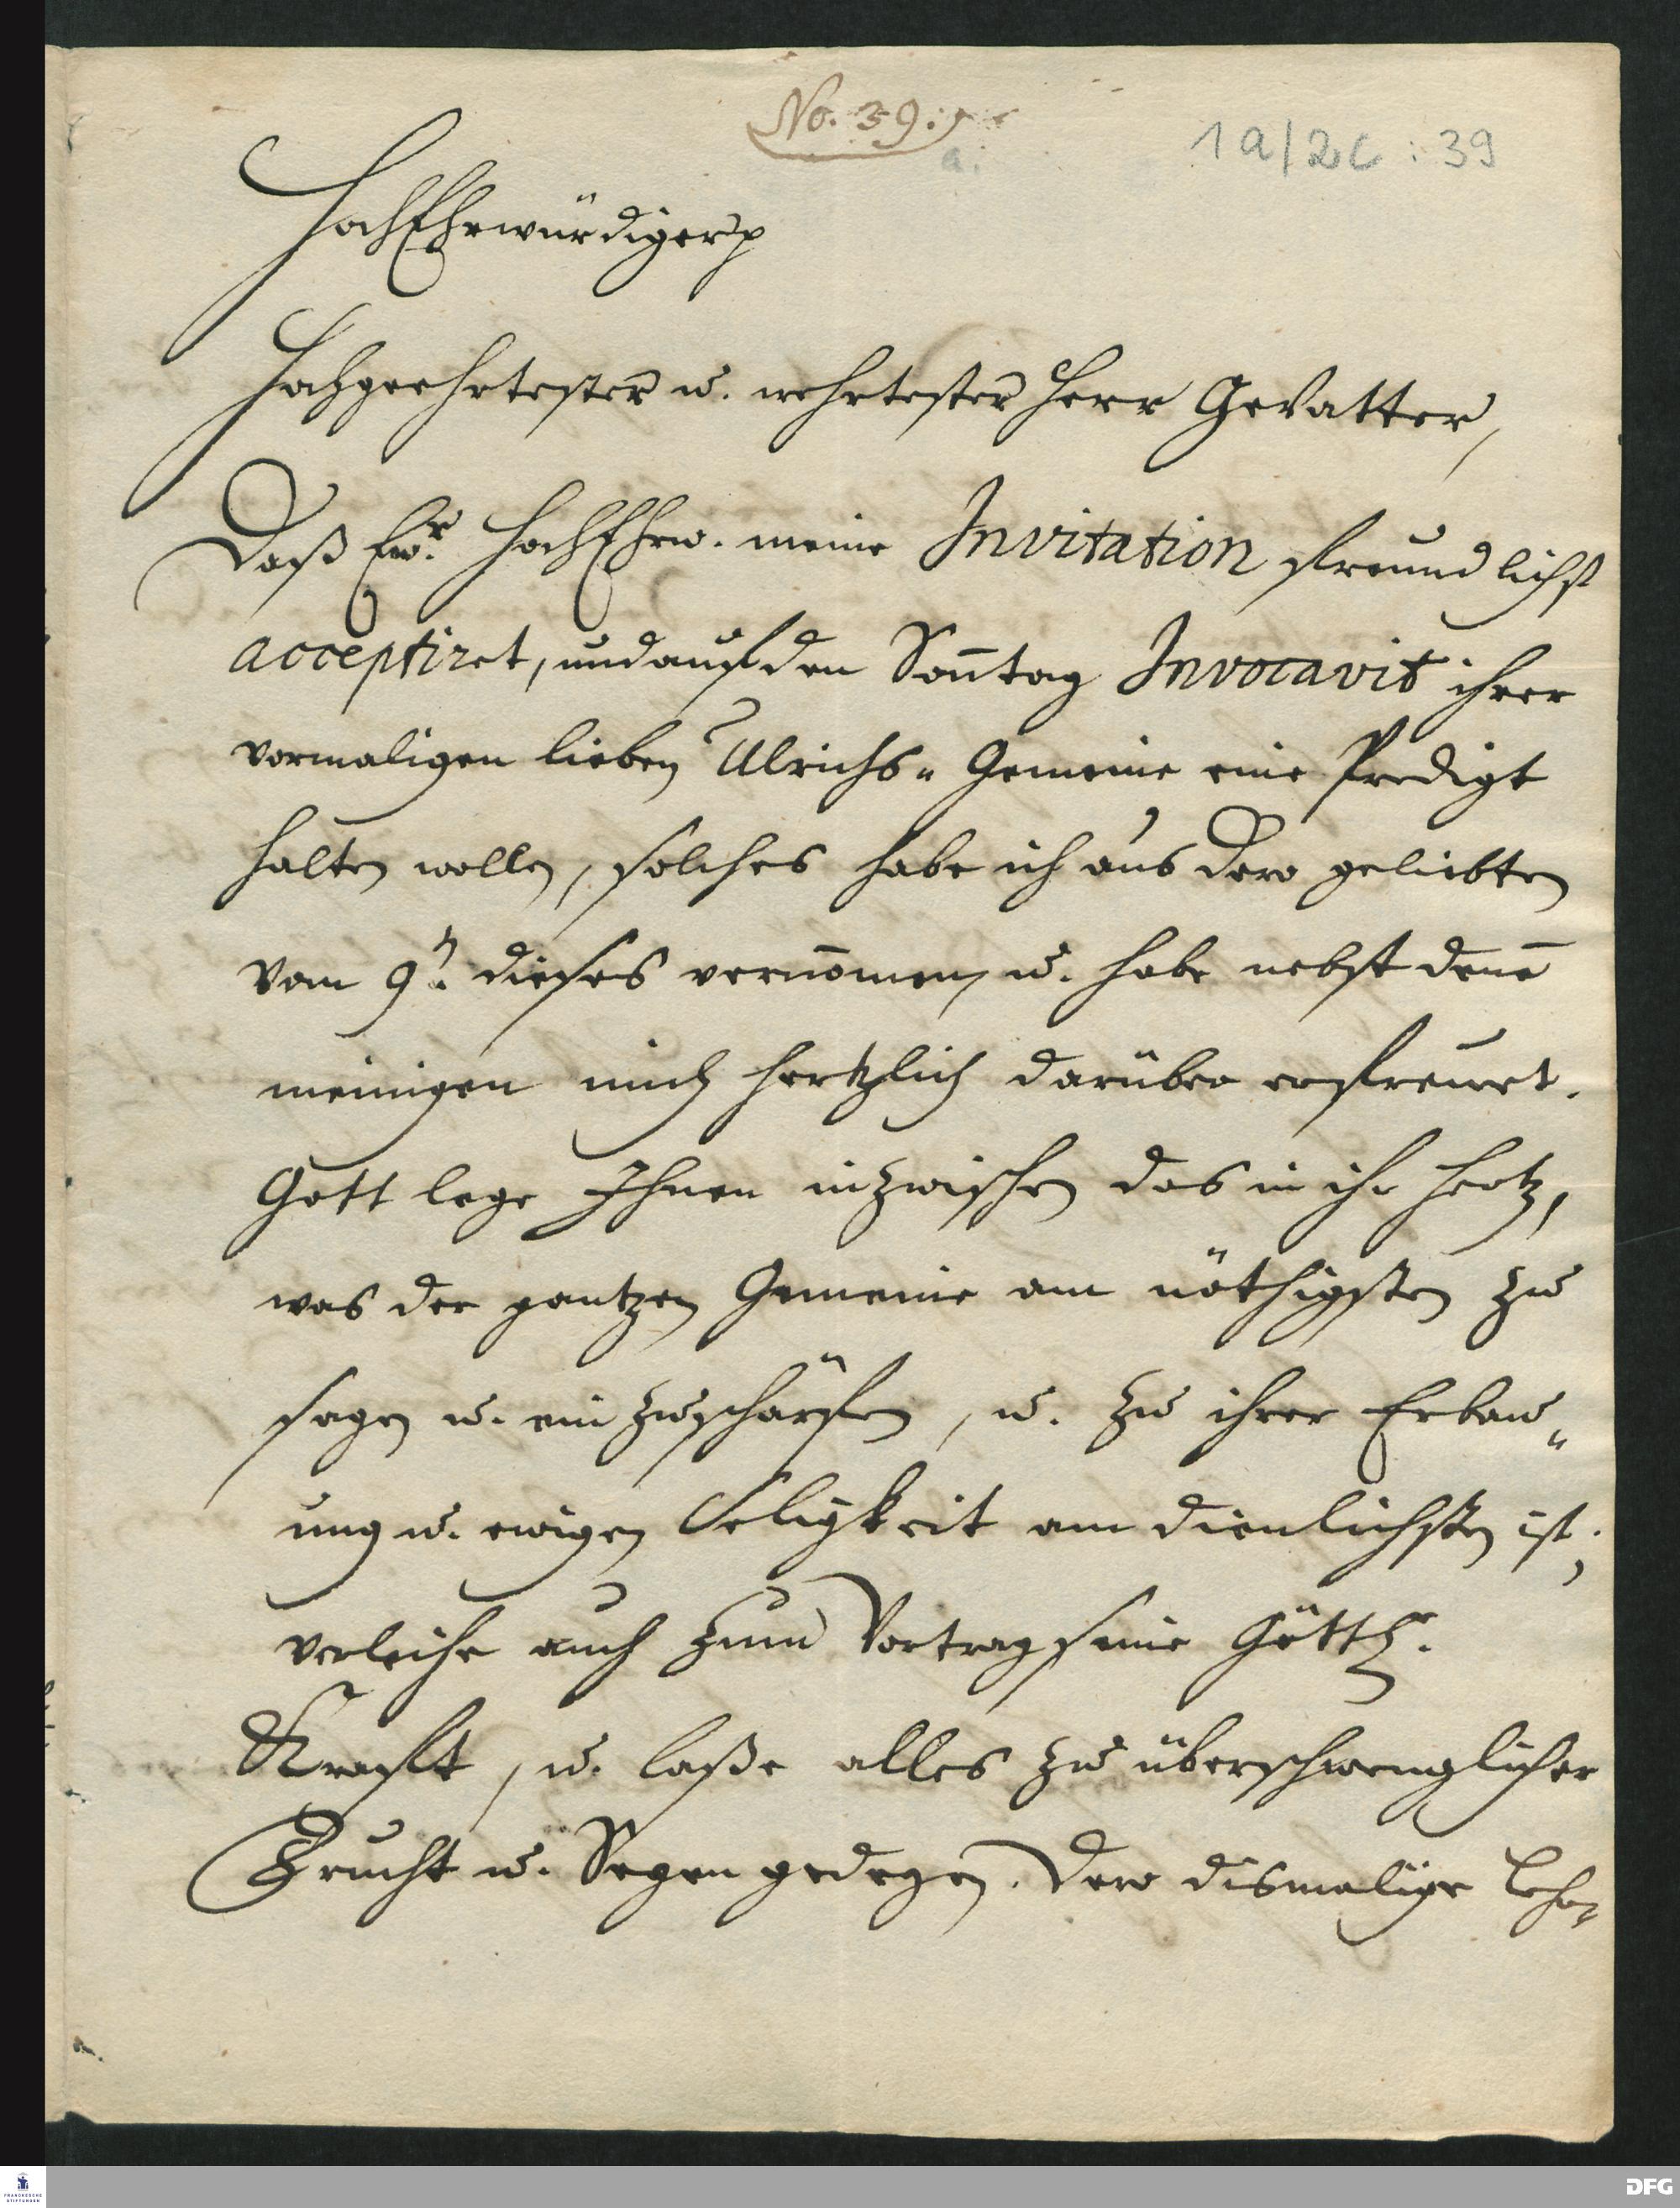 No. 39.
a.
1a/2c : 39
HochEhrwürdiger p
Hochgeehrtester u. wehrtester Herr Gevatter,
Daß Ew.r HochEhrw. meine Invitation freundlichst
acceptiret, und auf den Son̄tag Invocavit ihrer
vormaligen lieben Ulrichs- Gemeine eine Predigt
halten wollen, solches habe ich aus Dero geliebten
vom 9.n dieses vernom̄en, u. habe nebst denē
meinigen mich hertzlich darüber erfreuet.
Gott lege Ihnen inzwischen das in ihr Hertz,
was der gantzen Gemeine am nöthigsten zu
sagen u. einzuschärfen, u. zu ihrer Erbau-
ung u. ewigen Seligkeit am dienlichsten ist;
verleihe auch zum Vortrag seine Göttl.
Kraft, u. laße alles zu überschwenglicher
Frucht u. Segen gedegen. Dero dismalige
FRANCKESCHE
STIFTUNGEN
DFG